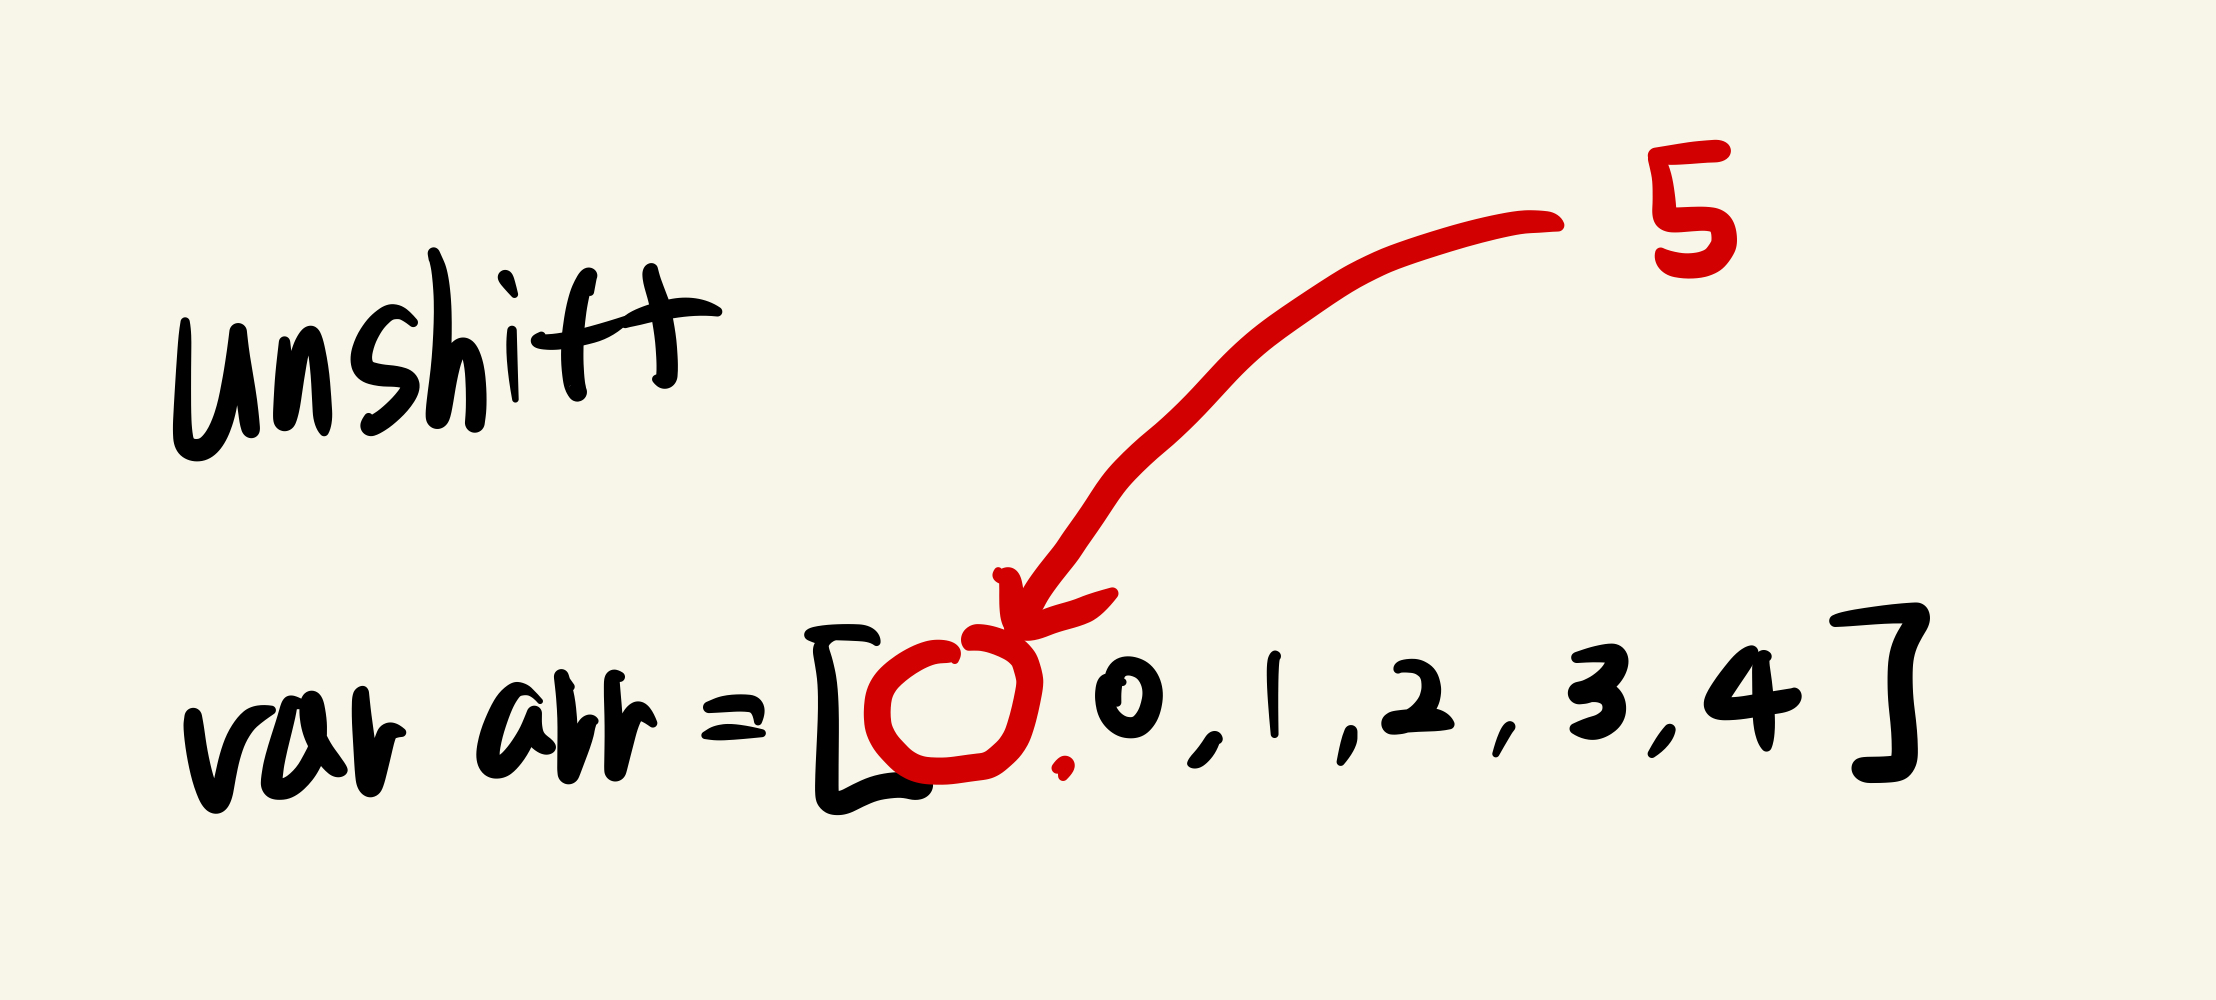 5
unshift
var arr = [ , 0, 1, 2, 3, 4 ]